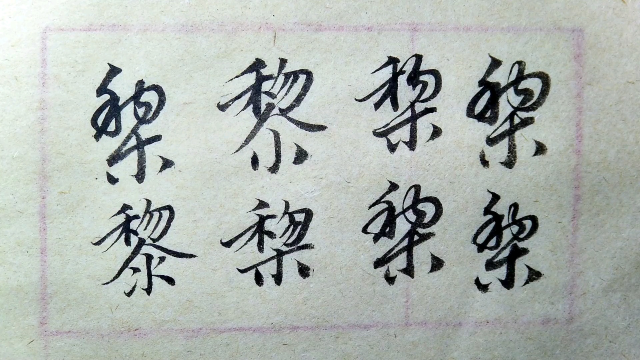 黎黎黎黎
黎黎黎黎